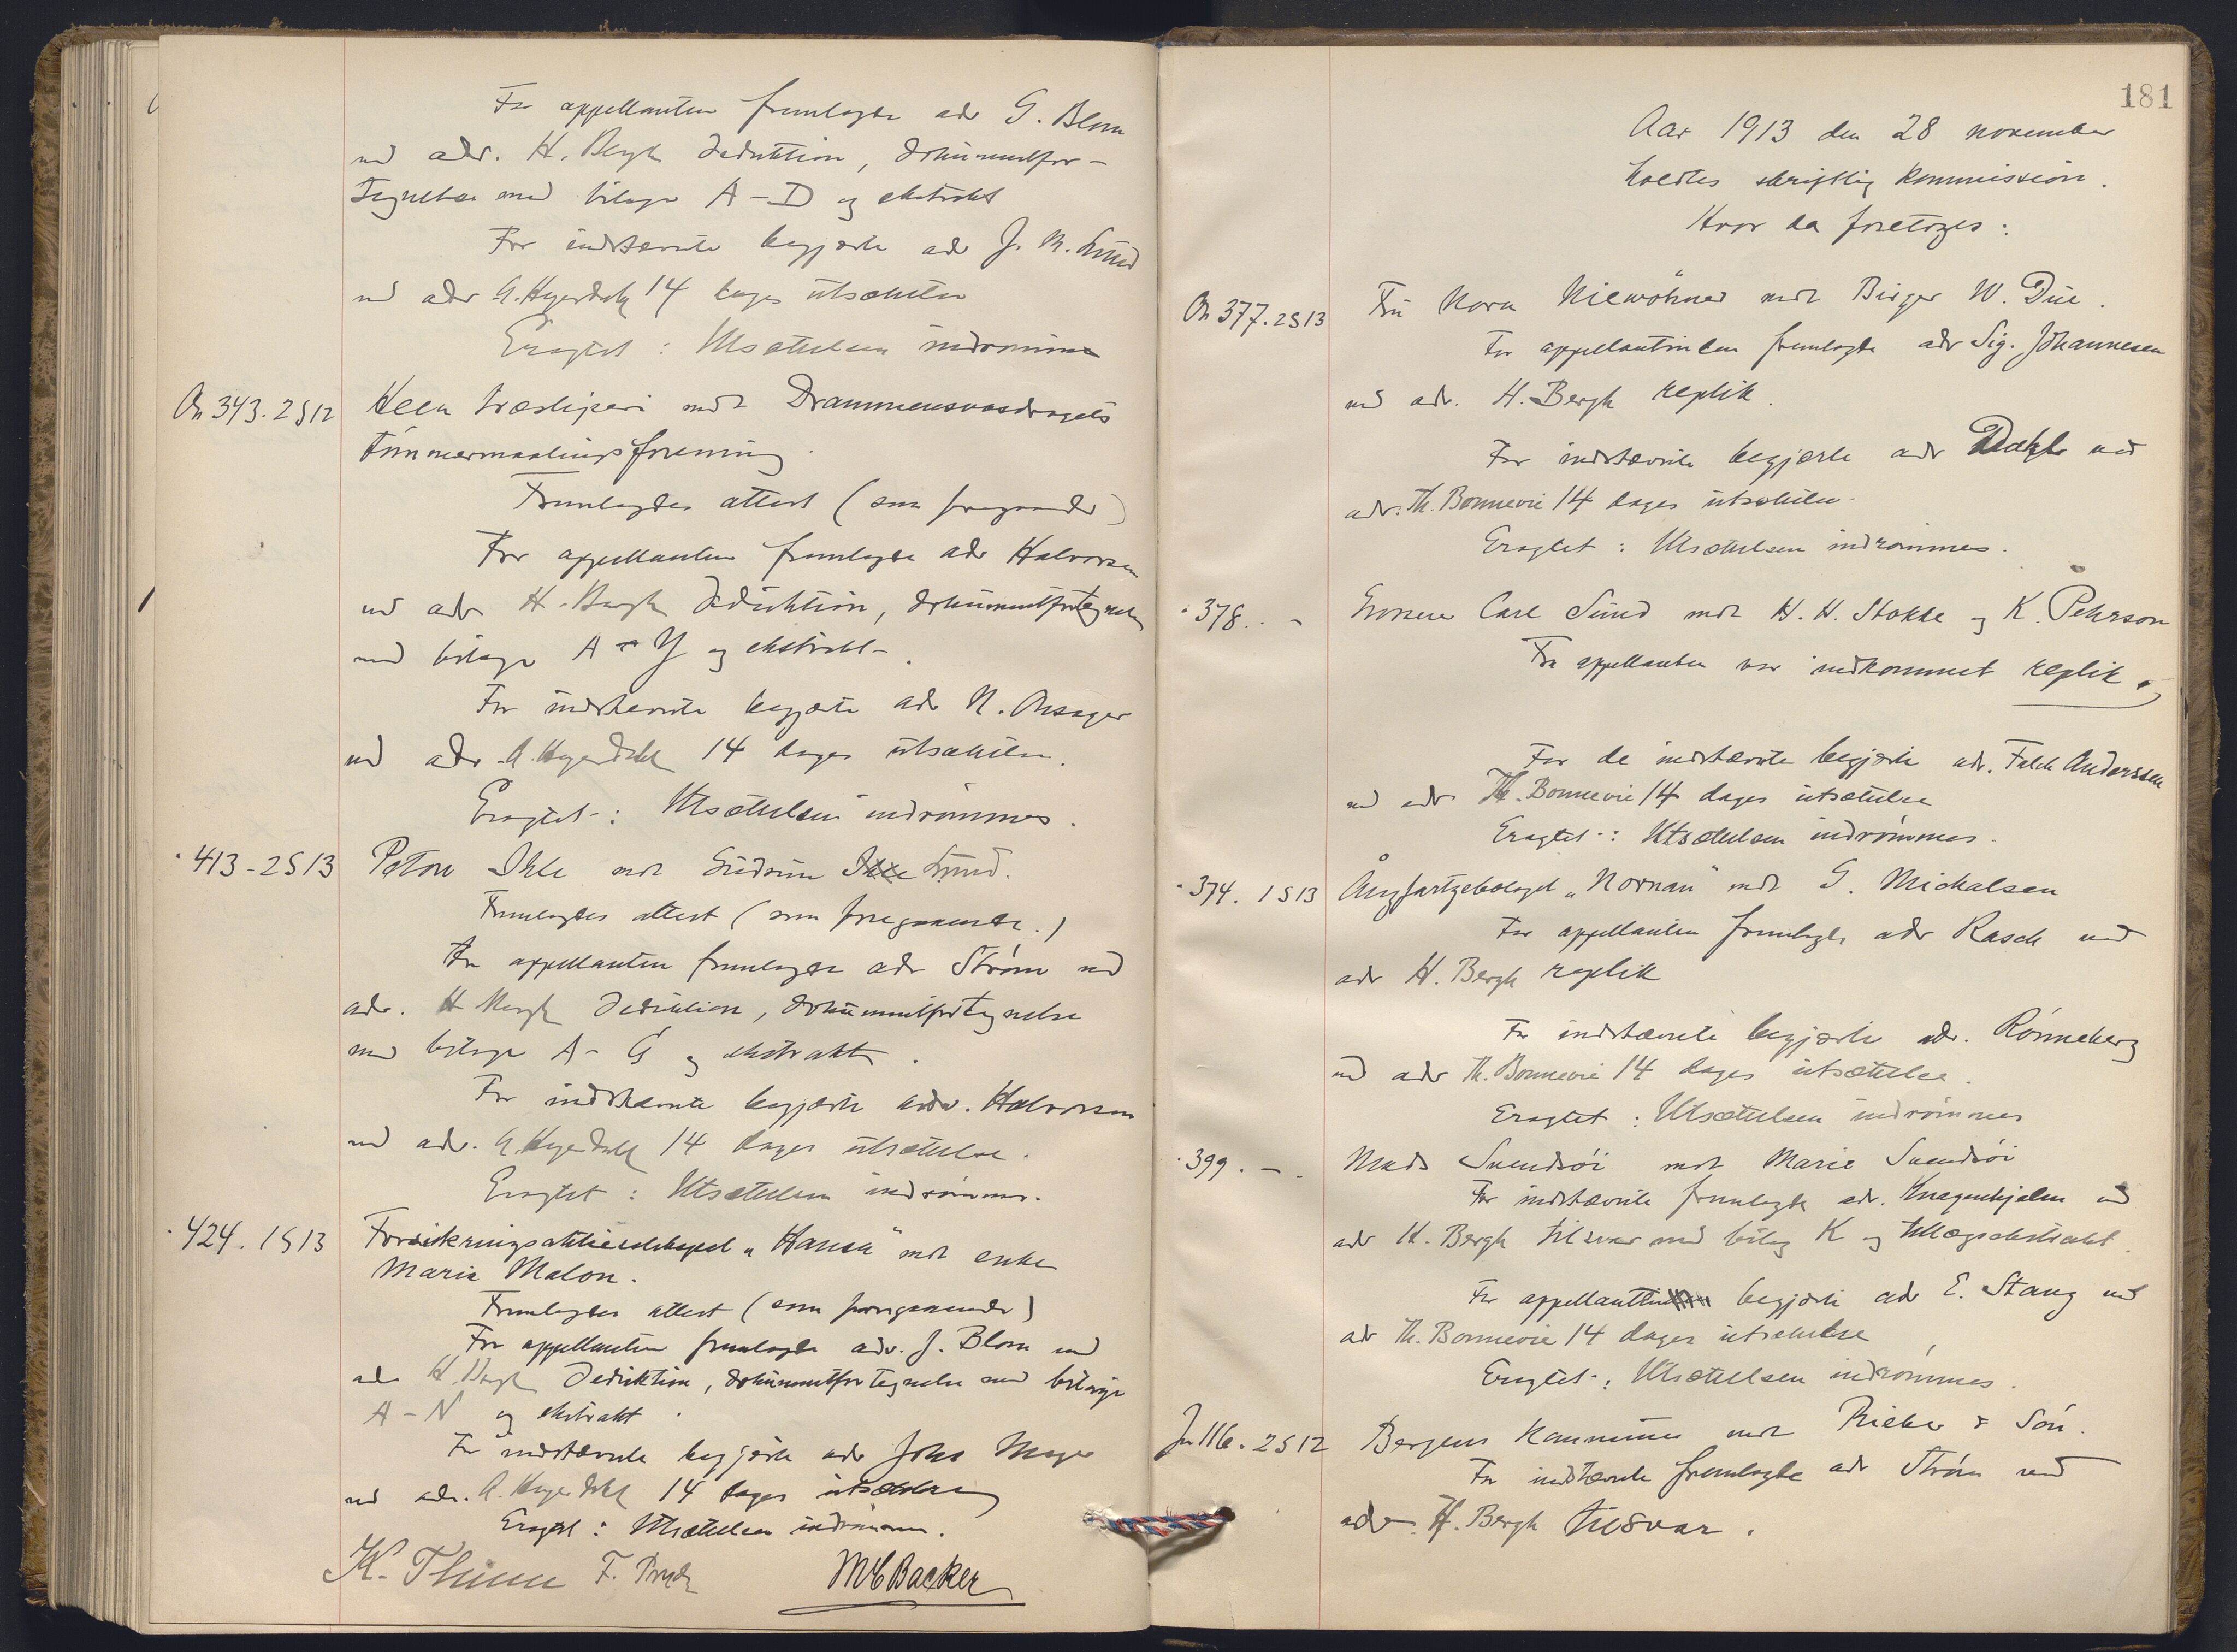 For appellanten fremlagde adv G. Blom
ved adv. H. Bergh deduktion, dokumentfor-
tegnelse med bilage A-D og ekstrakt
For indstevnte begjærte adv J. M. Lund
ved adv A. Heyerdahl 14 dages utsættelse
Eragtet : Utsættelsen indrømmes
On 343. 2S12 Heen træsliperi mot Drammensvasdragets
tømmermaalingsforening.
Fremlagdes attest (som foregaaende)
For appellanten fremlagde adv Halvorsen
ved adv H. Bergh deduktion, dokumentfortegnelse
med bilage A - Y og ekstrakt.
For indstevnte begjærte adv N. Onsager
ved adv. A. Heyerdahl 14 dages utsættelse.
Eragtet : Utsættelsen indrømmes.
" 413 - 2S13 Ihle mot Gudrun Lund.
Fremlagdes attest (som foregaaende.)
For appellanten fremlagde adv Strøm ved
adv. H Bergh deduktion, dokumentfortegnelse
med bilage A - G og ekstrakt.
For indstævnte begjærte adv. Halvorsen
ved adv. A. Heyerdahl 14 dages utsættelse.
Eragtet : Utsættelsen indrømmes.
" 424. 1S13 Forsikringsaktieselskapet "Hansa" mot enke
Maria Malon.
Fremlagdes attest (som foregaaende)
For appellanten fremlagde adv. J. Blom ved
adv H. Bergh deduktion, dokumentfortegnelse med bilage
A - N og ekstrakt.
For indstævnte begjærte adv Johs Meyer
ved adv. A. Heyerdahl 14 dages utsættelse
Eragtet : Utsættelsen indrømmes.
K. Thinn F. Brych MC Backer
181
Aar 1913 den 28 november
holdtes skriftlig kommission.
Hvor da foretoges :
On 377. 2S13 Fru Nora Niewöhner mot Birger W. Due.
For appellantinden fremlagde adv Sig. Johannesen
ved adv. H. Bergh replik.
For indstævnte begjærte adv Dahl ved
adv. Th. Bonnevie 14 dages utsættelse.
Eragtet : Utsættelsen indrømmes.
" 378. . - Carl Lund mot H. H. Stokke og K. Pehrson
Fra appellanten var indkommet replik.
For de indstævnte begjærte adv. Falck Anderssen
ved adv Th. Bonnevie 14 dages utsættelse
Eragtet : Utsættelsen indrømmes.
" 374. 1S13 Ångfartygsbolaget "Nornan" mot G. Michalsen
For appellanten fremlagde adv Rasch ved
adv H. Bergh replik
For indstævnte begjærte adv. Rønneberg
ved adv Th. Bonnevie 14 dages utsættelse.
Eragtet : Utsættelsen indrømmes
" 399. - . Mads Svendsøi mot Marie Svendsøi
For indstævnte fremlagde adv. Knagenhjelm ved
adv H. Bergh tilsvar med bilag K og tillægsekstrakt.
For appellanten begjærte adv E. Stang ved
adv Th. Bonnevie 14 dages utsættelse
Eragtet : Utsættelsen indrømmes.
Ju 116. 2S12 Bergens kommune mot Rieber & Søn.
For indstævnte fremlagde adv Strøm ved
adv. H. Bergh tilsvar.